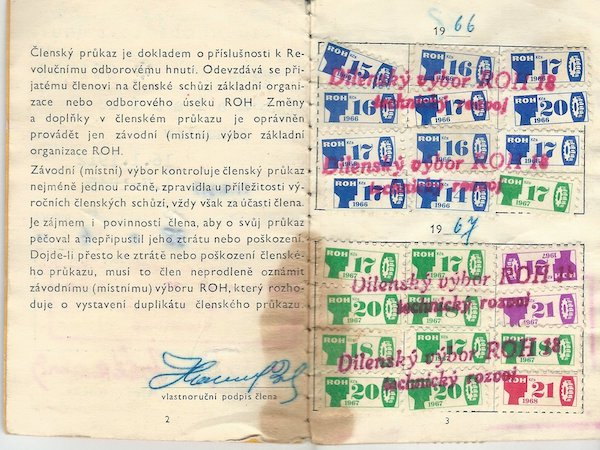 Členský průkaz je dokladem o příslušnosti k Re-
volučnímu odborovému hnutí. Odevzdává se při-
jatému členovi na členské schůzi základní organi-
zace nebo odborového úseku ROH. Změny
a doplňky v členském průkazu je oprávněn
provádět jen závodní (místní) výbor základní
organizace ROH.
Závodní (místní) výbor kontroluje členský průkaz
nejméně jednou ročně, zpravidla v příležitosti vý-
ročních členských schůzí, vždy však za účasti člena.
Je zájmem i povinností člena, aby o svůj průkaz
pečoval a nepřipustil jeho ztrátu nebo poškození.
Dojde-li přesto ke ztrátě nebo poškození členské-
ho průkazu, musí to člen neprodleně oznámit
závodnímu (místnímu) výboru ROH, který rozho-
duje o vystavení duplikátu členského průkazu.
vlastnoruční podpis člena
2
19 66
ROH Kčs 15 ROH Kčs 16 ROH Kčs 17
1966
Dílenský výbor ROH 18
technický rozvoj
ROH 16 ROH 17 ROH Kčs 20
1966 1966 1966
ROH 17 ROH Kčs 16 ROH Kčs 17
Dílenský výbor ROH 18
technický rozvoj
ROH 17 ROH 14 ROH Kčs 17
1966 1966 1967
19 67
ROH 17 ROH Kčs 17 15
1967 1967
Dílenský výbor ROH
technický rozvoj
ROH 20 ROH 18 21
1967
ROH 18 ROH 17
Dílenský výbor ROH 18
technický rozvoj
ROH 20 ROH 20 ROH Kčs 21
1967 1968
3